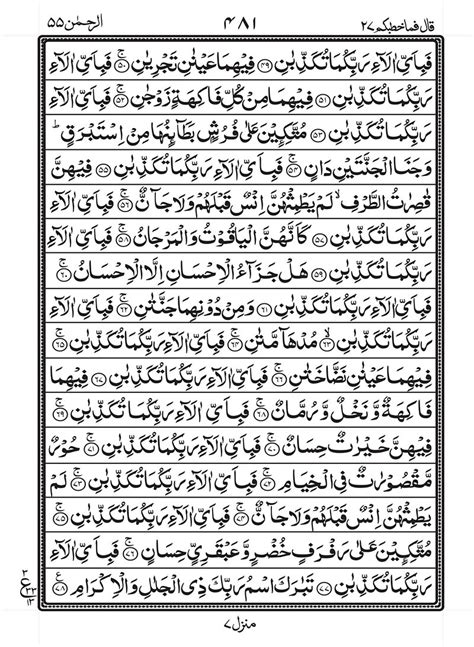 قال فما خطبكم ٢٧ ٤٨١ الرحمٰن ٥٥
فَبِاَیِّ اٰلَآءِ رَبِّکُمَا تُکَذِّبٰنِ ﴿۴۹﴾ فِیۡهِمَا عَیۡنٰنِ تَجۡرِیٰنِ ۚ﴿۵۰﴾ فَبِاَیِّ اٰلَآءِ
رَبِّکُمَا تُکَذِّبٰنِ ﴿۵۱﴾ فِیۡهِمَا مِنۡ کُلِّ فَاکِهَةٍ زَوۡجٰنِ ۚ﴿۵۲﴾ فَبِاَیِّ اٰلَآءِ
رَبِّکُمَا تُکَذِّبٰنِ ﴿۵۳﴾ مُتَّکِـِٕیۡنَ عَلٰی فُرُشٍۭ بَطَآئِنُهَا مِنۡ اِسۡتَبۡرَقٍ ؕ
وَ جَنَا الۡجَنَّتَیۡنِ دَانٍ ۚ﴿۵۴﴾ فَبِاَیِّ اٰلَآءِ رَبِّکُمَا تُکَذِّبٰنِ ﴿۵۵﴾ فِیۡهِنَّ
قٰصِرٰتُ الطَّرۡفِ ۙ لَمۡ یَطۡمِثۡهُنَّ اِنۡسٌ قَبۡلَهُمۡ وَ لَا جَآنٌّ ۚ﴿۵۶﴾ فَبِاَیِّ اٰلَآءِ
رَبِّکُمَا تُکَذِّبٰنِ ۚ﴿۵۷﴾ کَاَنَّهُنَّ الۡیَاقُوۡتُ وَ الۡمَرۡجَانُ ۚ﴿۵۸﴾ فَبِاَیِّ اٰلَآءِ
رَبِّکُمَا تُکَذِّبٰنِ ﴿۵۹﴾ هَلۡ جَزَآءُ الۡاِحۡسَانِ اِلَّا الۡاِحۡسَانُ ۚ﴿۶۰﴾
فَبِاَیِّ اٰلَآءِ رَبِّکُمَا تُکَذِّبٰنِ ﴿۶۱﴾ وَ مِنۡ دُوۡنِهِمَا جَنَّتٰنِ ۚ﴿۶۲﴾ فَبِاَیِّ اٰلَآءِ
رَبِّکُمَا تُکَذِّبٰنِ ﴿ۙ۶۳﴾ مُدۡهَآمَّتٰنِ ۚ﴿۶۴﴾ فَبِاَیِّ اٰلَآءِ رَبِّکُمَا تُکَذِّبٰنِ ۚ﴿۶۵﴾
فِیۡهِمَا عَیۡنٰنِ نَضَّاخَتٰنِ ۚ﴿۶۶﴾ فَبِاَیِّ اٰلَآءِ رَبِّکُمَا تُکَذِّبٰنِ ﴿۶۷﴾ فِیۡهِمَا
فَاکِهَةٌ وَّ نَخۡلٌ وَّ رُمَّانٌ ۚ﴿۶۸﴾ فَبِاَیِّ اٰلَآءِ رَبِّکُمَا تُکَذِّبٰنِ ۚ﴿۶۹﴾
فِیۡهِنَّ خَیۡرٰتٌ حِسَانٌ ۚ﴿۷۰﴾ فَبِاَیِّ اٰلَآءِ رَبِّکُمَا تُکَذِّبٰنِ ۚ﴿۷۱﴾ حُوۡرٌ
مَّقۡصُوۡرٰتٌ فِی الۡخِیَامِ ۚ﴿۷۲﴾ فَبِاَیِّ اٰلَآءِ رَبِّکُمَا تُکَذِّبٰنِ ۚ﴿۷۳﴾ لَمۡ
یَطۡمِثۡهُنَّ اِنۡسٌ قَبۡلَهُمۡ وَ لَا جَآنٌّ ۚ﴿۷۴﴾ فَبِاَیِّ اٰلَآءِ رَبِّکُمَا تُکَذِّبٰنِ ۚ﴿۷۵﴾
مُتَّکِـِٕیۡنَ عَلٰی رَفۡرَفٍ خُضۡرٍ وَّ عَبۡقَرِیٍّ حِسَانٍ ۚ﴿۷۶﴾ فَبِاَیِّ اٰلَآءِ
رَبِّکُمَا تُکَذِّبٰنِ ﴿۷۷﴾ تَبٰرَکَ اسۡمُ رَبِّکَ ذِی الۡجَلٰلِ وَ الۡاِکۡرَامِ ﴿۷۸﴾
٣ ع ٣٣ ١٣
منزل ٧